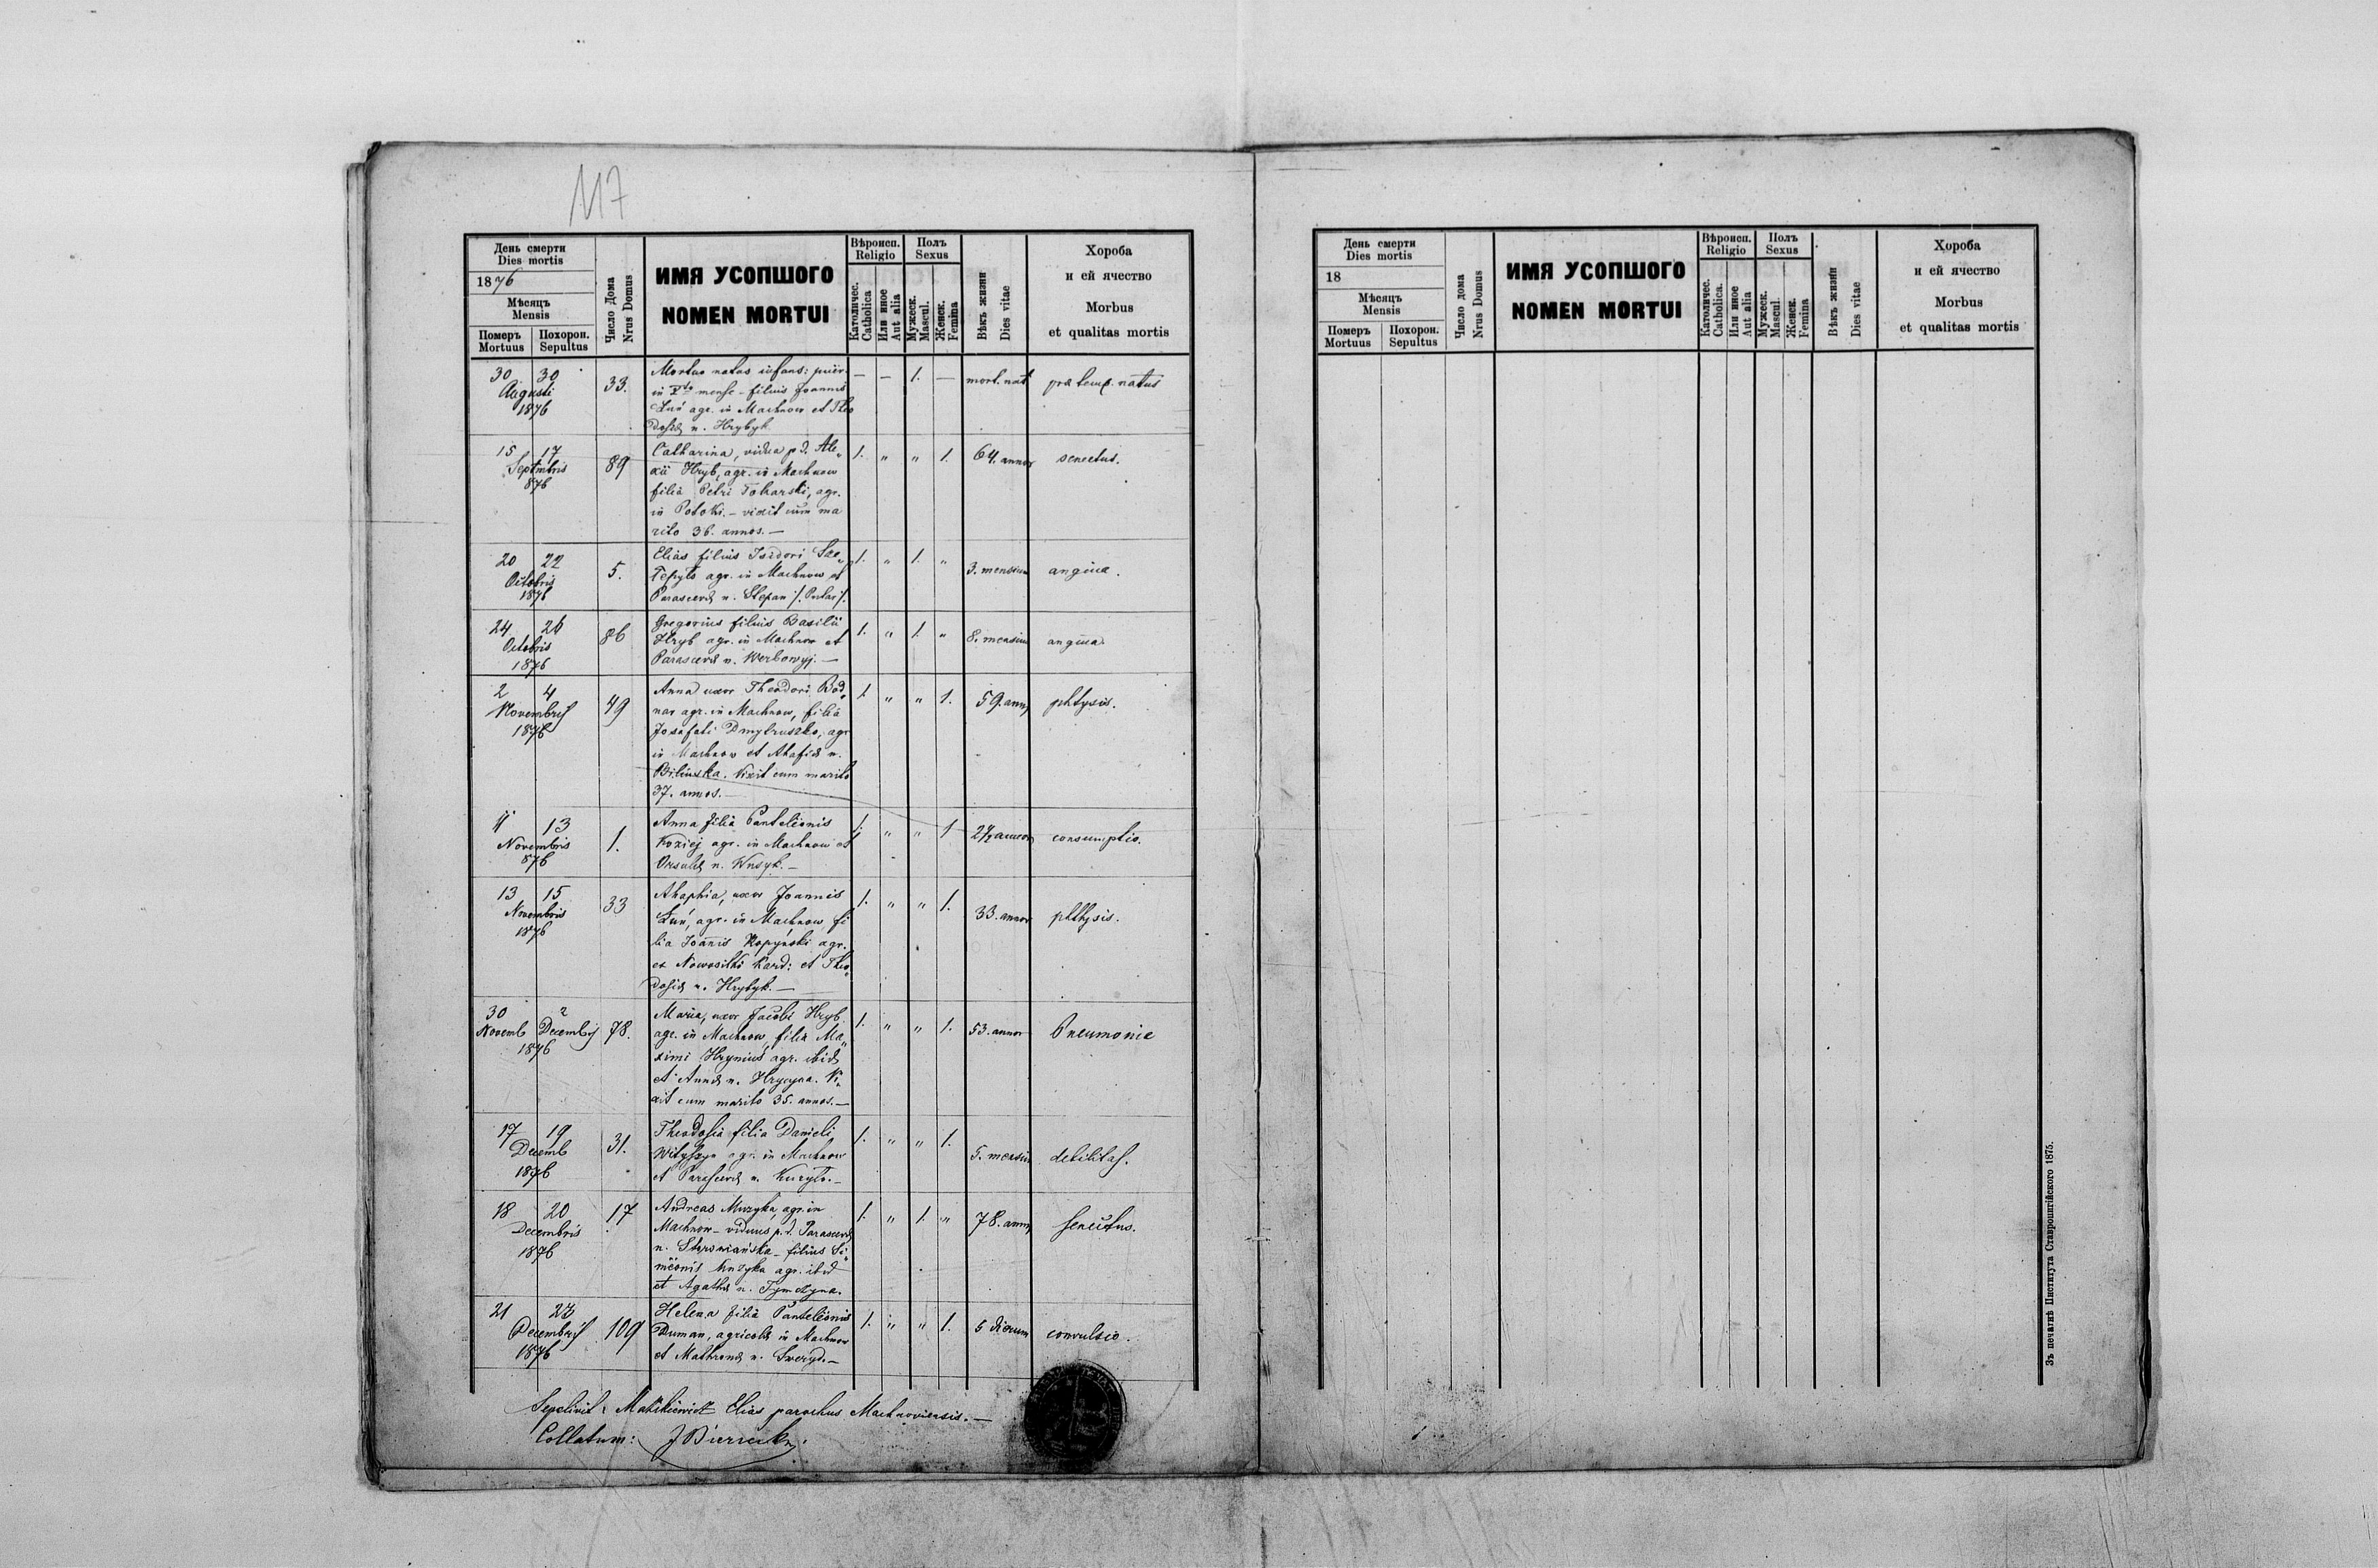 117
День смерти
Dies mortis
1876
Мѣсяцъ
Mensis
Померъ Похорон.
Mortuus Sepultus
Число Дома
Nrus Domus
ИМЯ УСОПШОГО
NOMEN MORTUI
Вѣроисп.
Religio
Католичес.
Catholica
Или иное
Aut alia
Полъ
Sexus
Мужеск.
Mascul.
Женск.
Femina
Вѣкъ жизни
Dies vitae
Хороба
и ей ячество
Morbus
et qualitas mortis
30 30
Augusti
1876
33.
Mortuo natus infans: puer
in mense - filius Joannis
Łuń agr. in Machnow et Theo
dosiæ n. Hrybyk
— — 1. — mort. nat præ temp. natus
15 17
Septmbris
876
89
Catharina, vidua p.d. Ale„
xii Hryb, agr. in Machnow
filia Petri Tokarski, agr.
in Potoki. – vixit cum ma
rito 36. annos. —
1. „ „ 1. 64. annor senectus.
20 22
Octobris
1876
5.
Elias filius Isidori
agr. in Machnow et
Parascevæ n. Stepan
1. „ 1. „ 3. mensium angina.
24 26
Octobris
1876
86
Gregorius filius Basilii
Hryb agr. in Machnow et
Parascevæ n. Werbowyj. —
1. „ 1. „ 8. mensium angina.
2 4
Novembris
1876
49
Anna uxor Theodori Bod„
nar agr. in Machnow, filia
Josafati Dmytruszko, agr
in Machnow et Ahafiæ n.
Bilińska. Vixit cum marito
37. annos. —
1. „ „ 1. 59. ann phtysis.
11 13
Novembris
876
1.
Anna filia Panteleonis
Koziej agr. in Machnow et
Ursulæ n. Wnsyk. —
1. „ „ 1 2½ annor consumptio.
13 15
Novembris
1876
33
Ahaphia, uxor Joannis
Łuń, agr. in Machnow, fi
lia Joanis Kopyński agr.
ex Nowosiłki Kard: et Theo„
dosiæ n. Hrybyk. —
1. „ „ 1. 33. annor phthysis.
30 2
Novemb Decembris
1876
78.
Maria, uxor Jacobi Hryb
agr. in Machnow, filia Ma„
ximi Hryniuś agr. ibid
et Annæ n. Hrycyna. Vi„
xit cum marito 35. annos. —
1. „ „ 1. 53. annor Pneumonie
17 19
Decemb
1876
31.
Theodosia filia Danieli
agr. in Machnow
et Parascevæ n. Kuzyło. —
1. „ „ 1. 5. mensium debilitas.
18 20
Decembris
1876
17
Andreas Muzyka, agr. in
Machnow - viduus p.d. Parascevæ
n. - filius Si„
meonis Muzyka agr. ibid
et Agathæ n.
1. „ 1. „ 78. ann senectus.
21
Decembris
1876
109
Helena filia Panteleonis
Duman, agricolæ in Machnow
et Mathronæ n.
1. „ „ 1. 5 dierum convulsio.
Sepelivit: Elias parochus Machnoviensis. —
Collatum:
День смерти
Dies mortis
18
Мѣсяцъ
Mensis
Померъ Похорон.
Mortuus Sepultus
Число дома
Nrus Domus
ИМЯ УСОПШОГО
NOMEN MORTUI
Вѣроисп.
Religio
Католичес.
Catholica.
Или иное
Aut alia
Полъ
Sexus
Мужеск.
Mascul.
Женск.
Femina
Вѣкъ жизни
Dies vitae
Хороба
и ей ячество
Morbus
et qualitas mortis
Зъ печатнѣ Института Ставропигійского 1875.